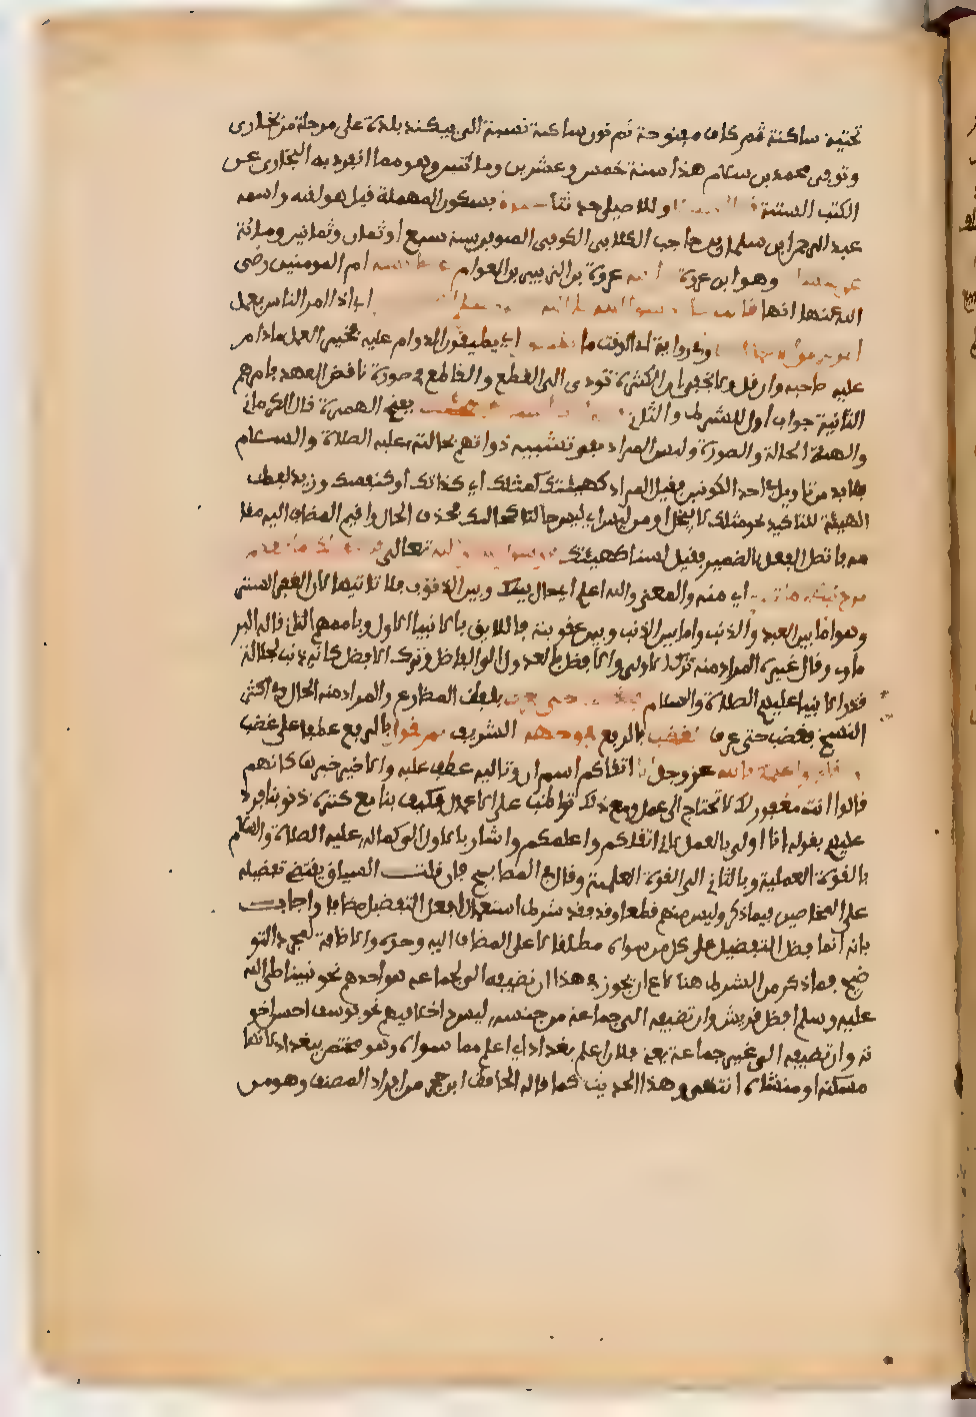 تحتية ساكنة ثم كاف مفتوحة ثم نون ساكنة نسبة الى بيكند بلدة على مرحلة من بخارى
وتوفى محمد بن سلام هذا سنة خمس وعشرين وماتين وهو مما انفرد به البخارى عن
الكتب الستة وللاصيلى حدثنا عبدة بسكون المهملة قيل هو لقبه واسمه
عبد الرحمن بن سليمان بن حاجب الكلابى الكوفى المتوفى سنة سبع او ثمان وثمانين ومائة
عن هشام وهو ابن عروة عن ابيه عروة بن الزبير بن العوام عن عائشة ام المومنين رضى
الله عنها انها قالت كان رسول الله صلى الله عليه وسلم اذا امر الناس بعمل
امرهم وفى رواية ابى الوقت ما يطيقون اى يطيقون الدوام عليه فخير العمل ما دام
عليه صاحبه وان قل ولا يخفى ان الكثرة تودى الى القطع والقاطع فى صورة ناقض العهد فامرهم
الثانية جواب اول للشرط والثانى بفتح الهمزة قال الكرمانى
والهيئة الحالة والصورة وليس المراد نفى تشبيه ذواتهم بحالته عليه الصلاة والسلام
فلابد من تاويل فى احد الطرفين فقيل المراد كهيئتك كمثلك اى كذاتك او كنفسك وزيد لفظ
الهيئة للتاكيد نحو مثلك لا يبخل او من لسنا اى ليس حالنا كحالك فحذف الحال واقيم المضاف اليه مقا
مه فاتصل الفعل بالضمير فقيل لسنا كهيئتك يرسول الله ان الله تعالى قد غفر لك ما تقدم
من ذنبك وما تاخر اى منه والمعنى والله اعلم اى حال بينك وبين الذنوب فلا تاتيها لان الغفر الستر
وهو اما بين العبد والذنب واما بين الذنب وبين عقوبته فاللايق بالانبيا الاول وباممهم الثانى قاله البر
ماوى وقال غيره المراد منه ترك الاولى والافضل بالعدول الى الفاضل وترك الافضل كانه ذنب لجلالة
قدر الانبيا عليهم الصلاة والسلام فيغضب حتى يعرف بلفظ المضارع والمراد منه الحال وفى اكثر
النسخ فغضب حتى عرف الغضب بالرفع فى وجهه الشريف ثم يقول بالرفع عطفا على يغضب
ان اتقاكم واعلمكم بالله عز وجل انا اتقاكم اسم ان وتاليه عطف عليه وانا خبر خبرها كانهم
قالوا انت مغفور لك لا تحتاج الى عمل ومع ذلك تواظب على الاعمال فكيف بنا مع كثرة ذنوبنا فرد
عليهم بقوله انا اولى بالعمل لانى اتقاكم واعلمكم واشار بالاول الى كماله عليه الصلاة والسلام
بالقوة العملية وبالثانى الى القوة العلمية وقال فى المصابيح فان قلت السياق يقتضى تفضيله
على المخاطبين فيما ذكر وليس منهم قطعا وقد فقد شرط استعمال افعل التفضيل مضافا واجاب
بانه انما قصد التفضيل على كل من سواه مطلقا لا على المضاف اليه وحده والاضافة لمجرد التو
ضيح فما ذكر من الشرط هنا لاغ اذ يجوز فى هذا ان تضيفه الى جماعة هو احدهم نحو نبينا صلى الله
عليه وسلم افضل قريش وان تضيفه الى جماعة من جنسه ليس داخلا فيهم نحو يوسف احسن اخو
ته وان تضيفه الى غير جماعة نحو فلان اعلم بغداد اى اعلم مما سواه وهو مختص ببغداد لانها
مسكنه او منشاه انتهى وهذا الحديث كما قاله الحافظ ابن حجر من افراد المصنف وهو من